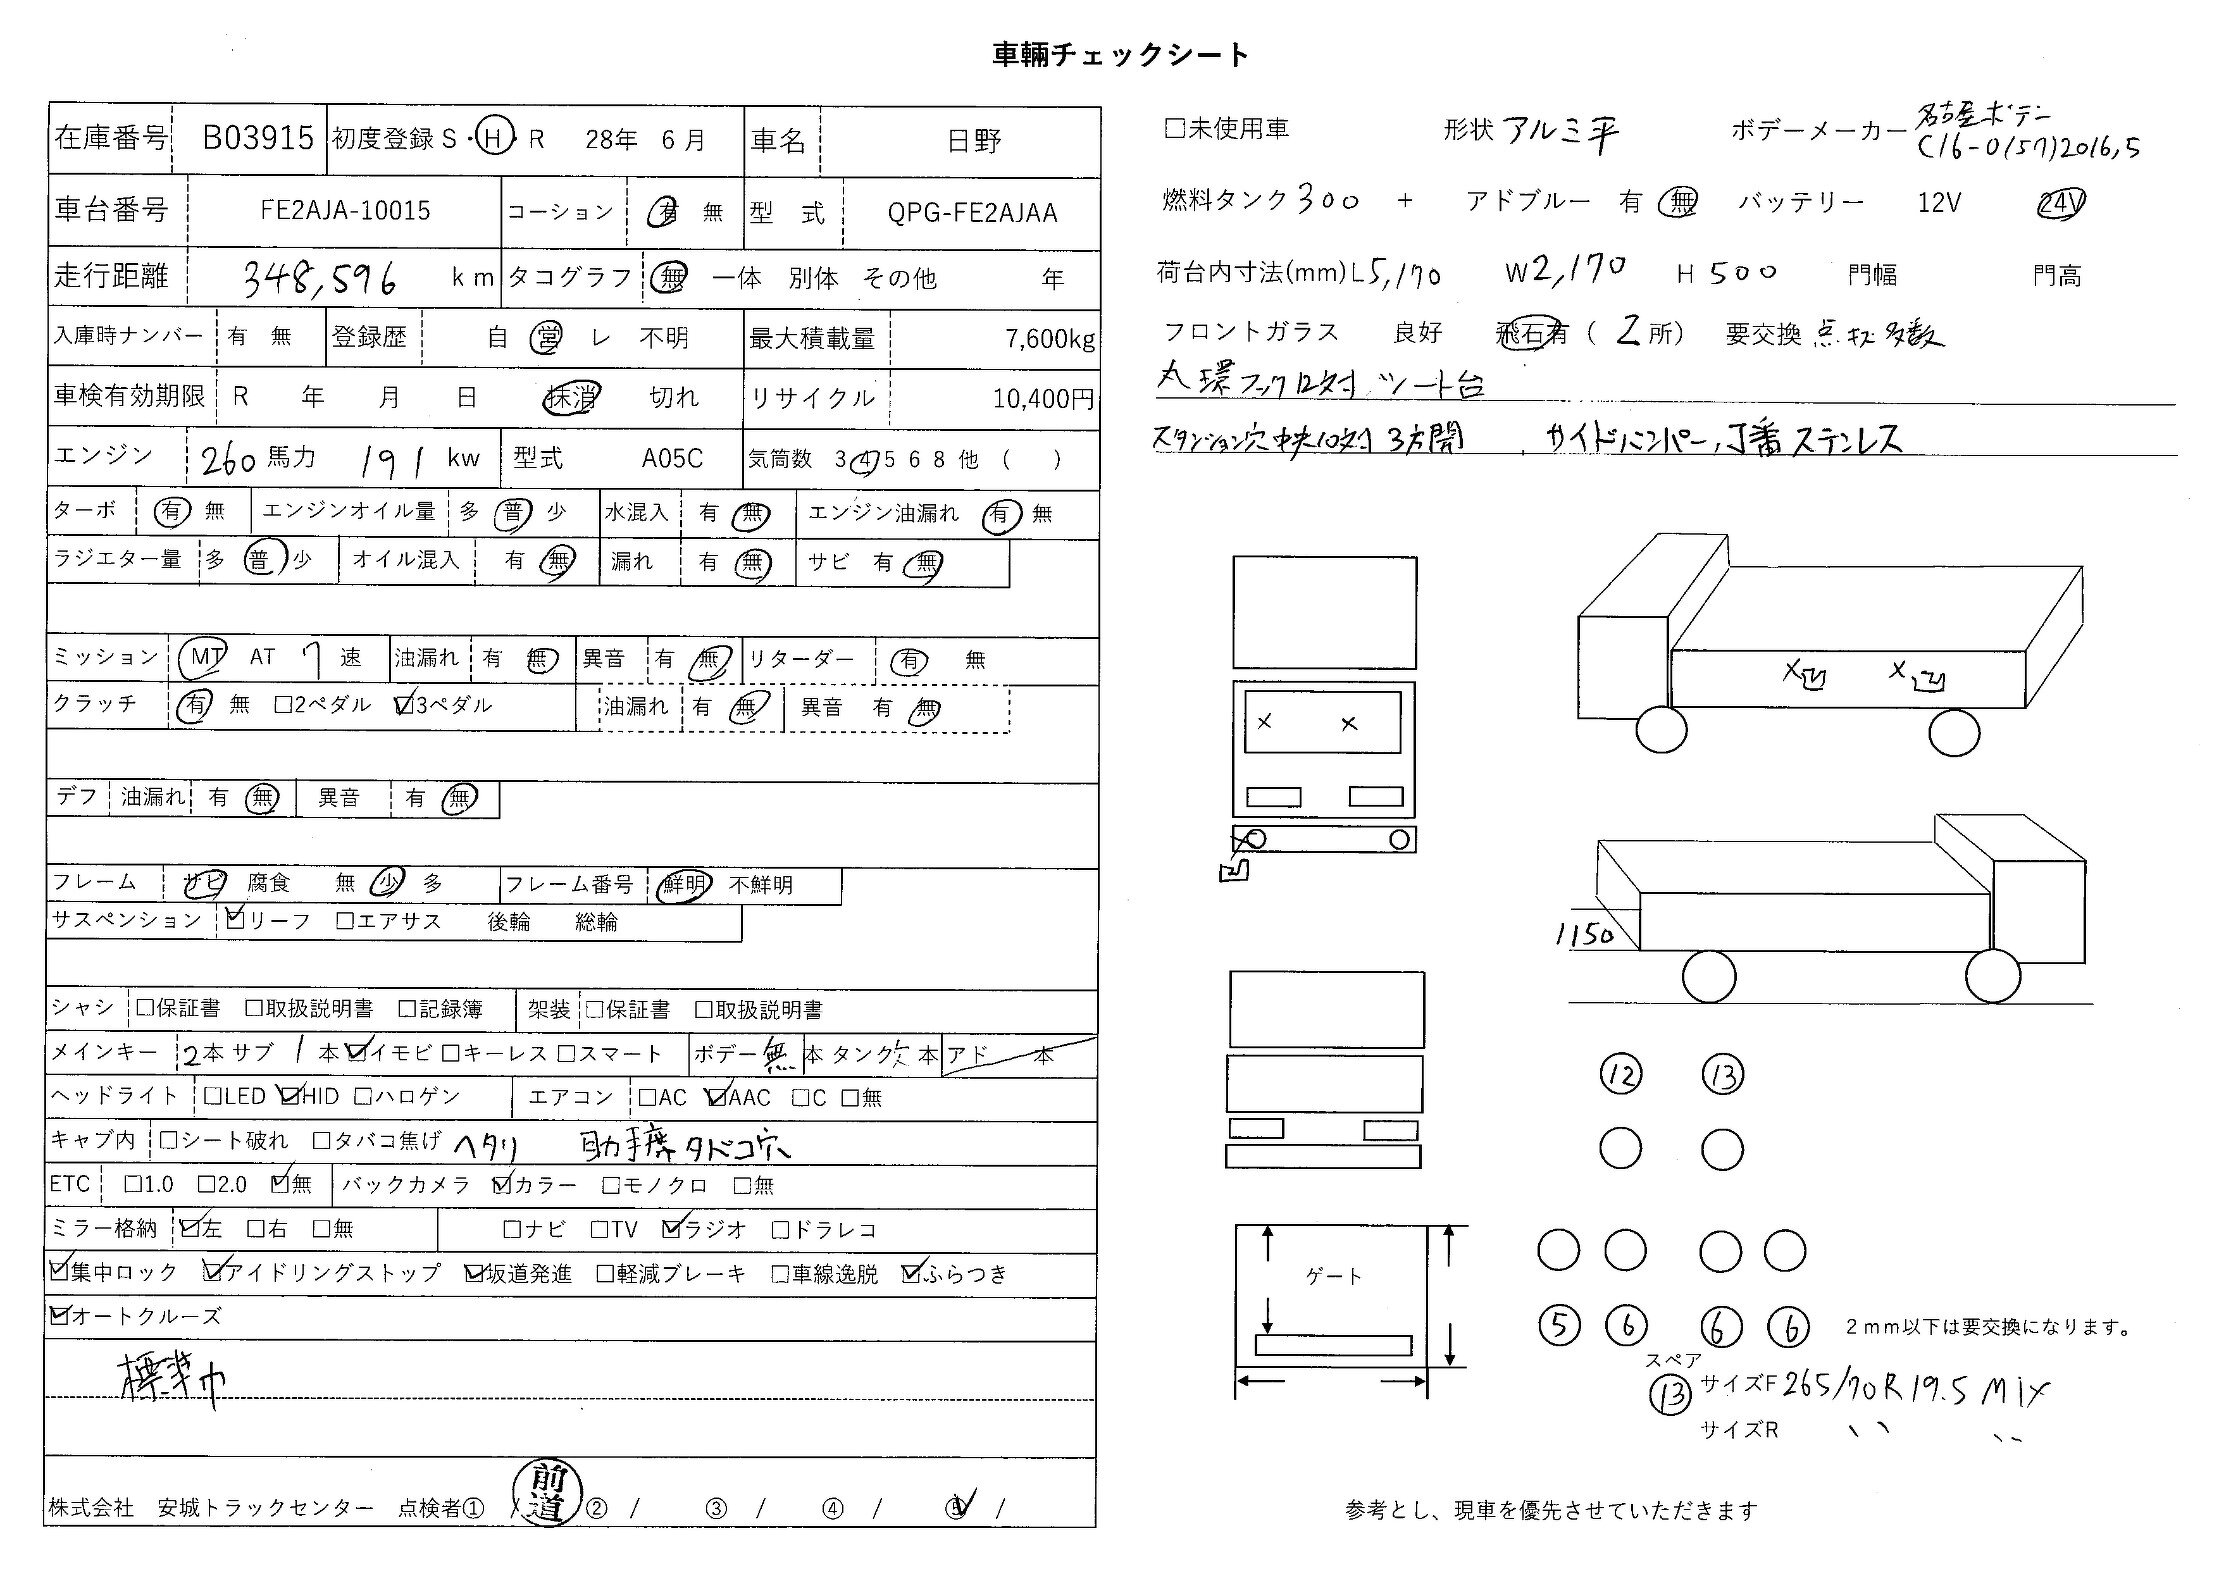 車輛チェックシート
在庫番号 B03915 初度登録 S・H・R 28年 6月 車名 日野
車台番号 FE2AJA-10015 コーション 有 無 型 式 QPG-FE2AJAA
走行距離 348,596 km タコグラフ 無 一体 別体 その他 年
入庫時ナンバー 有 無 登録歴 自 営 レ 不明 最大積載量 7,600kg
車検有効期限 R 年 月 日 抹消 切れ リサイクル 10,400円
エンジン 260馬力 191 kw 型式 A05C 気筒数 3 4 5 6 8 他 ( )
ターボ 有 無 エンジンオイル量 多 普 少 水混入 有 無 エンジン油漏れ 有 無
ラジエター量 多 普 少 オイル混入 有 無 漏れ 有 無 サビ 有 無
ミッション MT AT 7 速 油漏れ 有 無 異音 有 無 リターダー 有 無
クラッチ 有 無 □2ペダル ☑3ペダル 油漏れ 有 無 異音 有 無
デフ 油漏れ 有 無 異音 有 無
フレーム サビ 腐食 無 少 多 フレーム番号 鮮明 不鮮明
サスペンション ☑リーフ □エアサス 後輪 総輪
シャシ □保証書 □取扱説明書 □記録簿 架装 □保証書 □取扱説明書
メインキー 2本 サブ 1 本 ☑イモビ □キーレス □スマート ボデー 無 本 タンク 欠 本 アド 本
ヘッドライト □LED ☑HID □ハロゲン エアコン □AC ☑AAC □C □無
キャブ内 □シート破れ □タバコ焦げ ヘタリ 助手席タバコ穴
ETC □1.0 □2.0 ☑無 バックカメラ ☑カラー □モノクロ □無
ミラー格納 ☑左 □右 □無 □ナビ □TV ☑ラジオ □ドラレコ
☑集中ロック ☑アイドリングストップ ☑坂道発進 □軽減ブレーキ □車線逸脱 ☑ふらつき
☑オートクルーズ
標準巾
株式会社 安城トラックセンター 点検者① / 前道 ② / ③ / ④ / ⑤ /
□未使用車 形状 アルミ平 ボデーメーカー 名古屋ボデー
C16-0(57)2016,5
燃料タンク 300 + アドブルー 有 無 バッテリー 12V 24V
荷台内寸法(mm) L5,170 W2,170 H 500 門幅 門高
フロントガラス 良好 飛石有 ( 2 所) 要交換 点キズ多数
丸環フック12対 シート台
スタンション穴中央10対 3方開 , サイドバンパー,丁番ステンレス
X凹 X凹
X X
凹
1150
⑫ ⑬
ゲート
⑤ ⑥ ⑥ ⑥ 2mm以下は要交換になります。
スペア
⑬ サイズF 265/70R19.5 MIX
サイズR 〃 〃
参考とし、現車を優先させていただきます